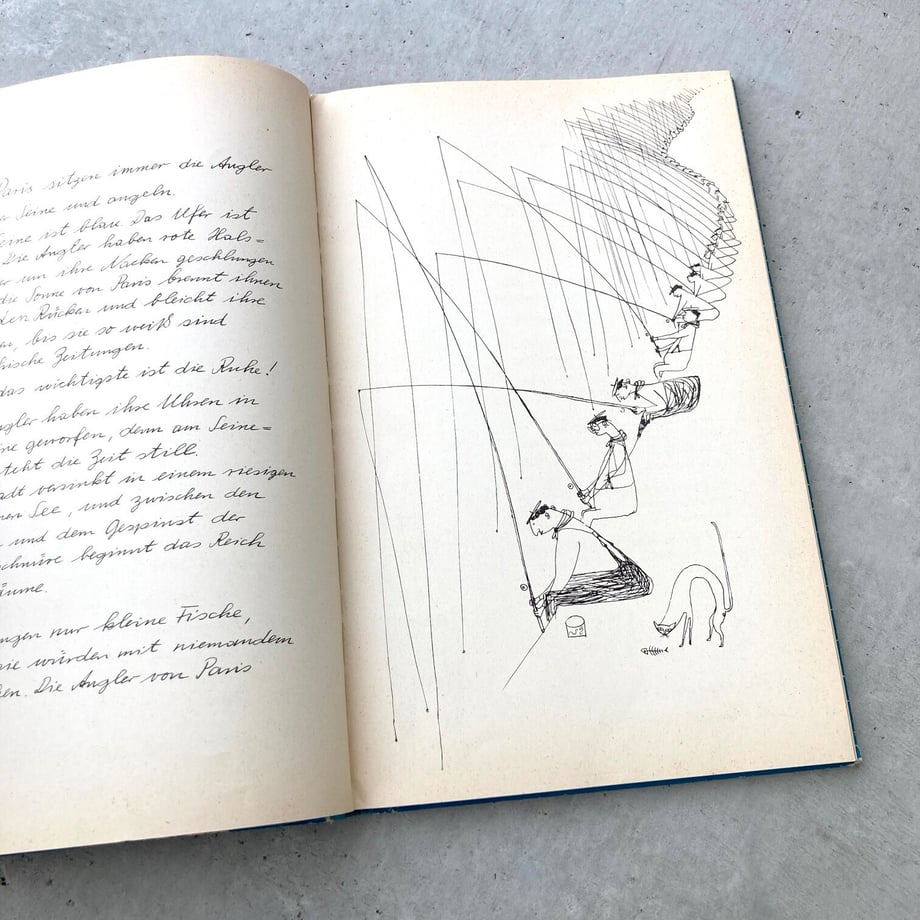 Paris sitzen immer die Angler
Seine und angeln.
ist blau. Das Ufer ist
Die Angler haben rote Hals=
um ihre Nacken geschlungen
die Sonne von Paris brennt ihnen
den Rücken und bleicht ihre
bis sie so weiß sind
Zeitungen.
das wichtigste ist die Ruhe!
haben ihre Uhren in
geworfen, denn am Seine=
steht die Zeit still.
versinkt in einem riesigen
See, und zwischen den
und dem Gespinst der
schnüre beginnt das Reich
nur kleine Fische,
sie würden mit niemandem
Die Angler von Paris